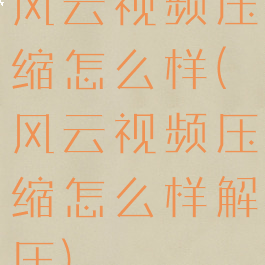 风云视频压
缩怎么样(
风云视频压
缩怎么样解
压)